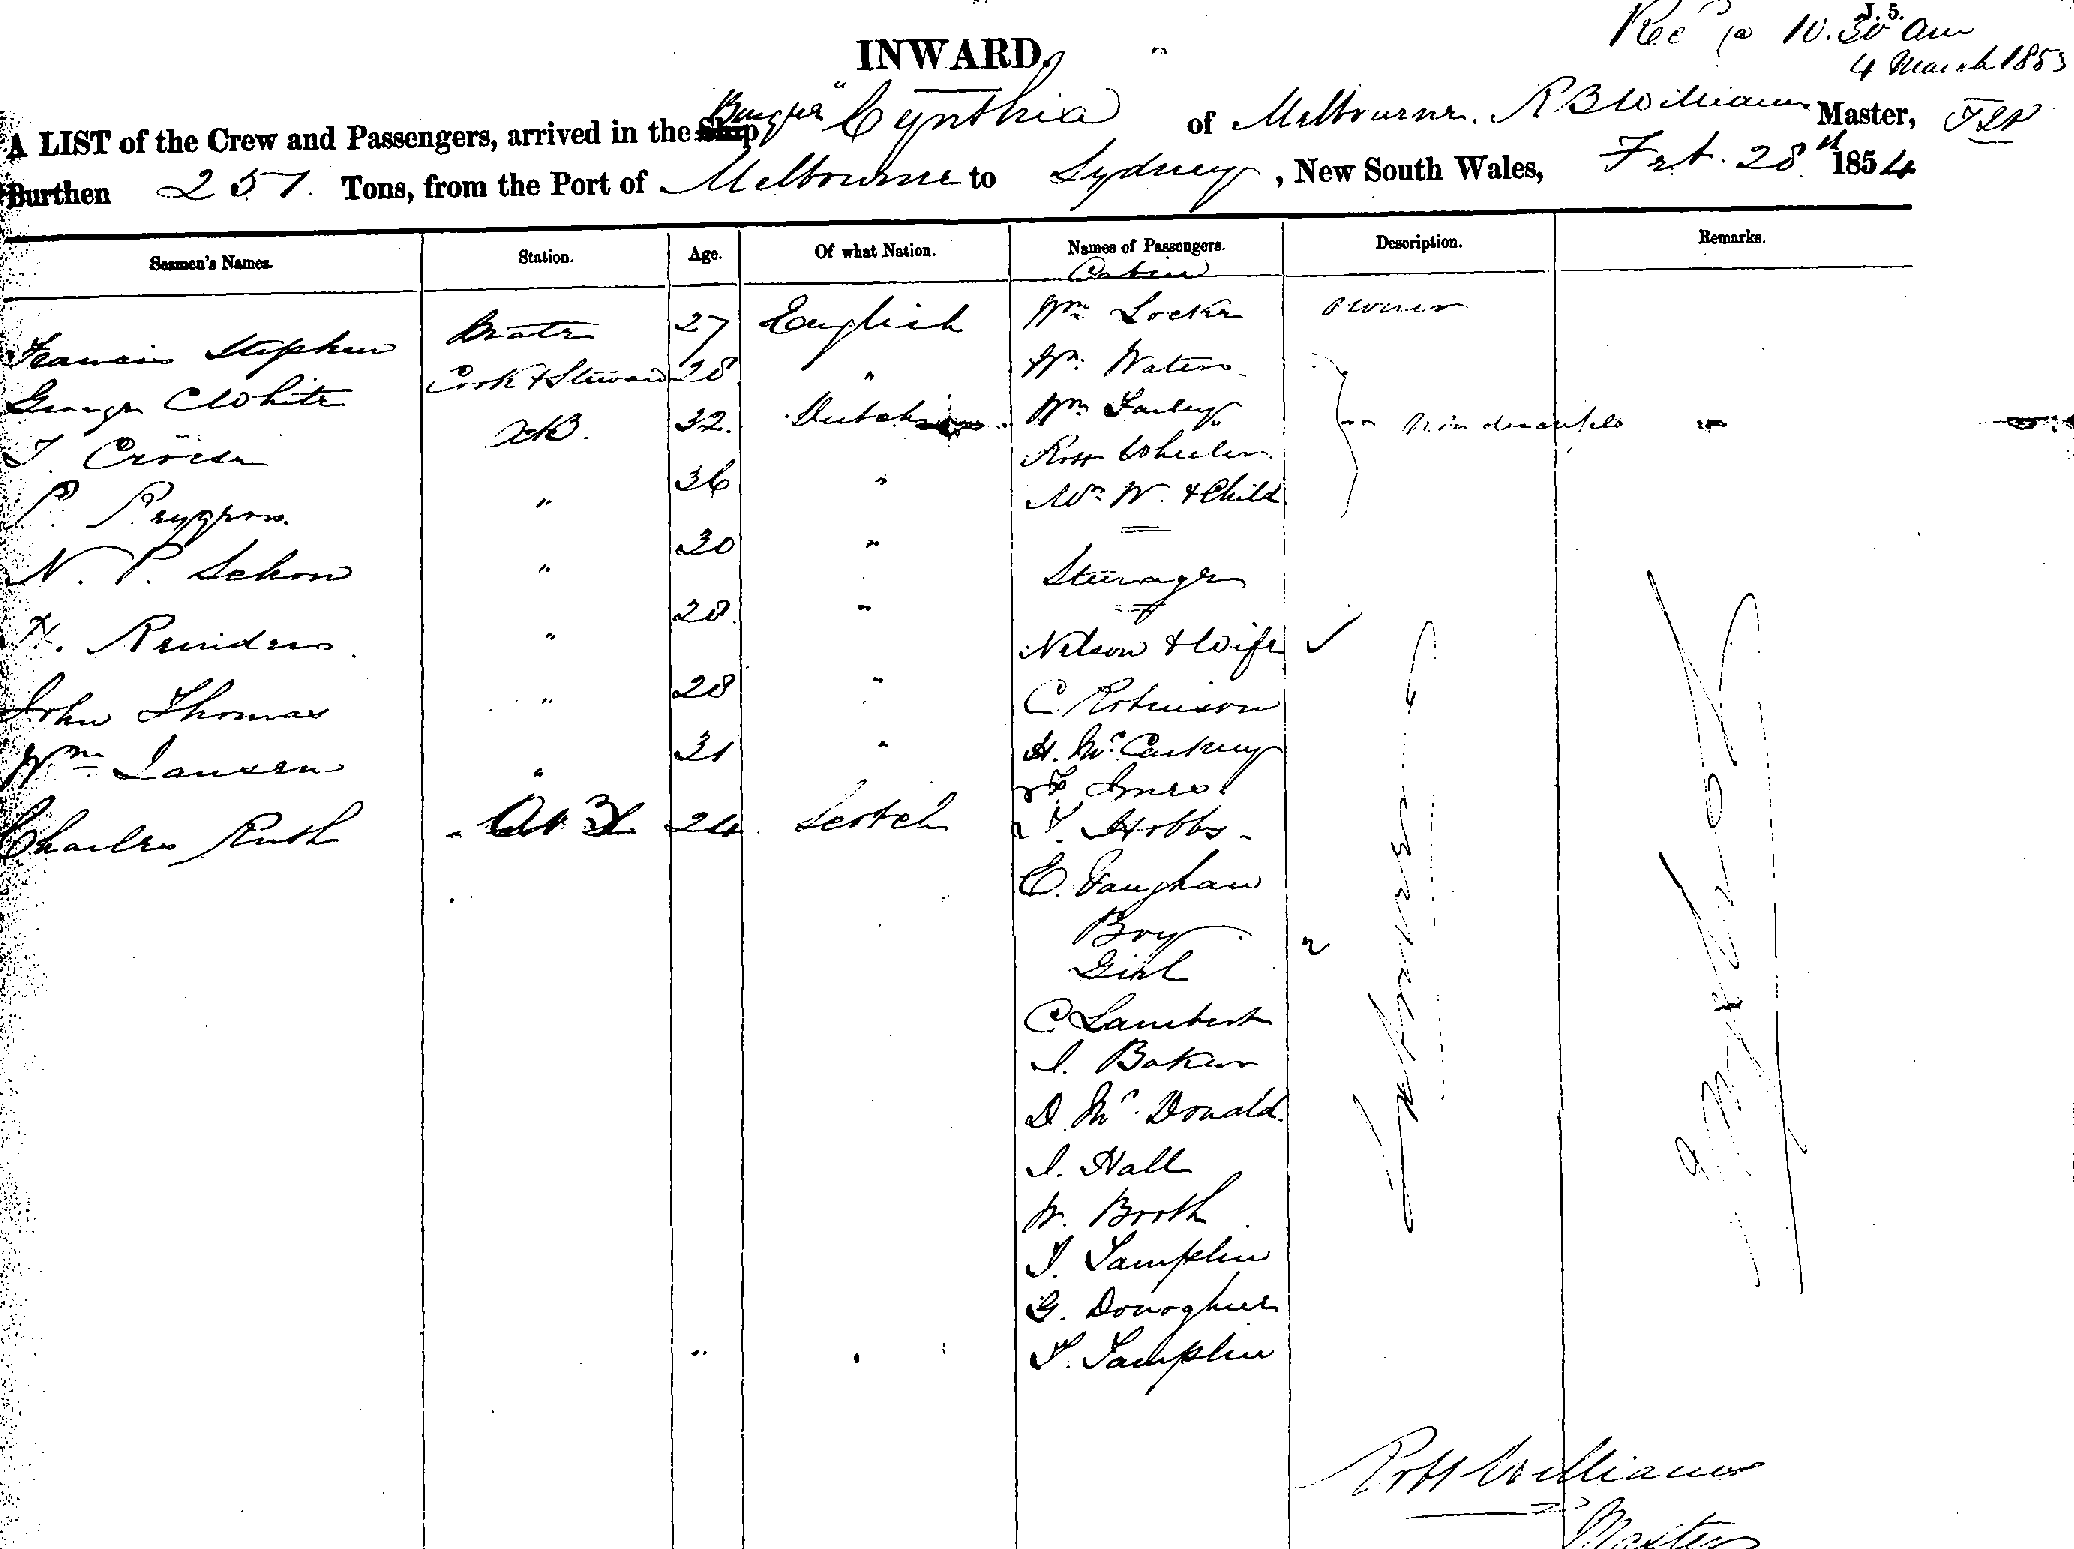 J. 5.
Recd @ 10.30 am
4 March 1853
INWARD.
A LIST of the Crew and Passengers, arrived in the Ship "Cynthia" of Melbourne. R B Williams Master,
Burthen 251. Tons, from the Port of Melbourne to Sydney, New South Wales, Feb. 28th 1854
Seamen's Names. Station. Age. Of what Nation. Names of Passengers. Description. Remarks.
Cabin
Francis Stephen Mate 27 English Wm Locke owner
George White Cook & Steward 28 " Wm Waters
32. Dutch Wm
P. 36 " Robt Wheeler
Mrs W. & Child
N. P. Schow " 30 "
Steerage
H. Reinders " 28. " Nelson & Wife
John Thomas " 28 " C Robinson
Wm Jansen " 31 " H. McCartney
Innes
Charles Ruth AB 24 Scotch Hobbs
E. Vaughan
Boy
Girl
C Lambert
J. Baker
D. McDonald
J. Hall
W. Booth
J. Tamplin
G. Donoghue
T. Tamplin
Robt Williams
Master